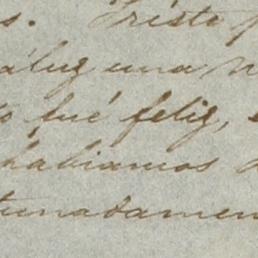 s. Triste
á luz una
fué felig,
habiamos
tunadamen